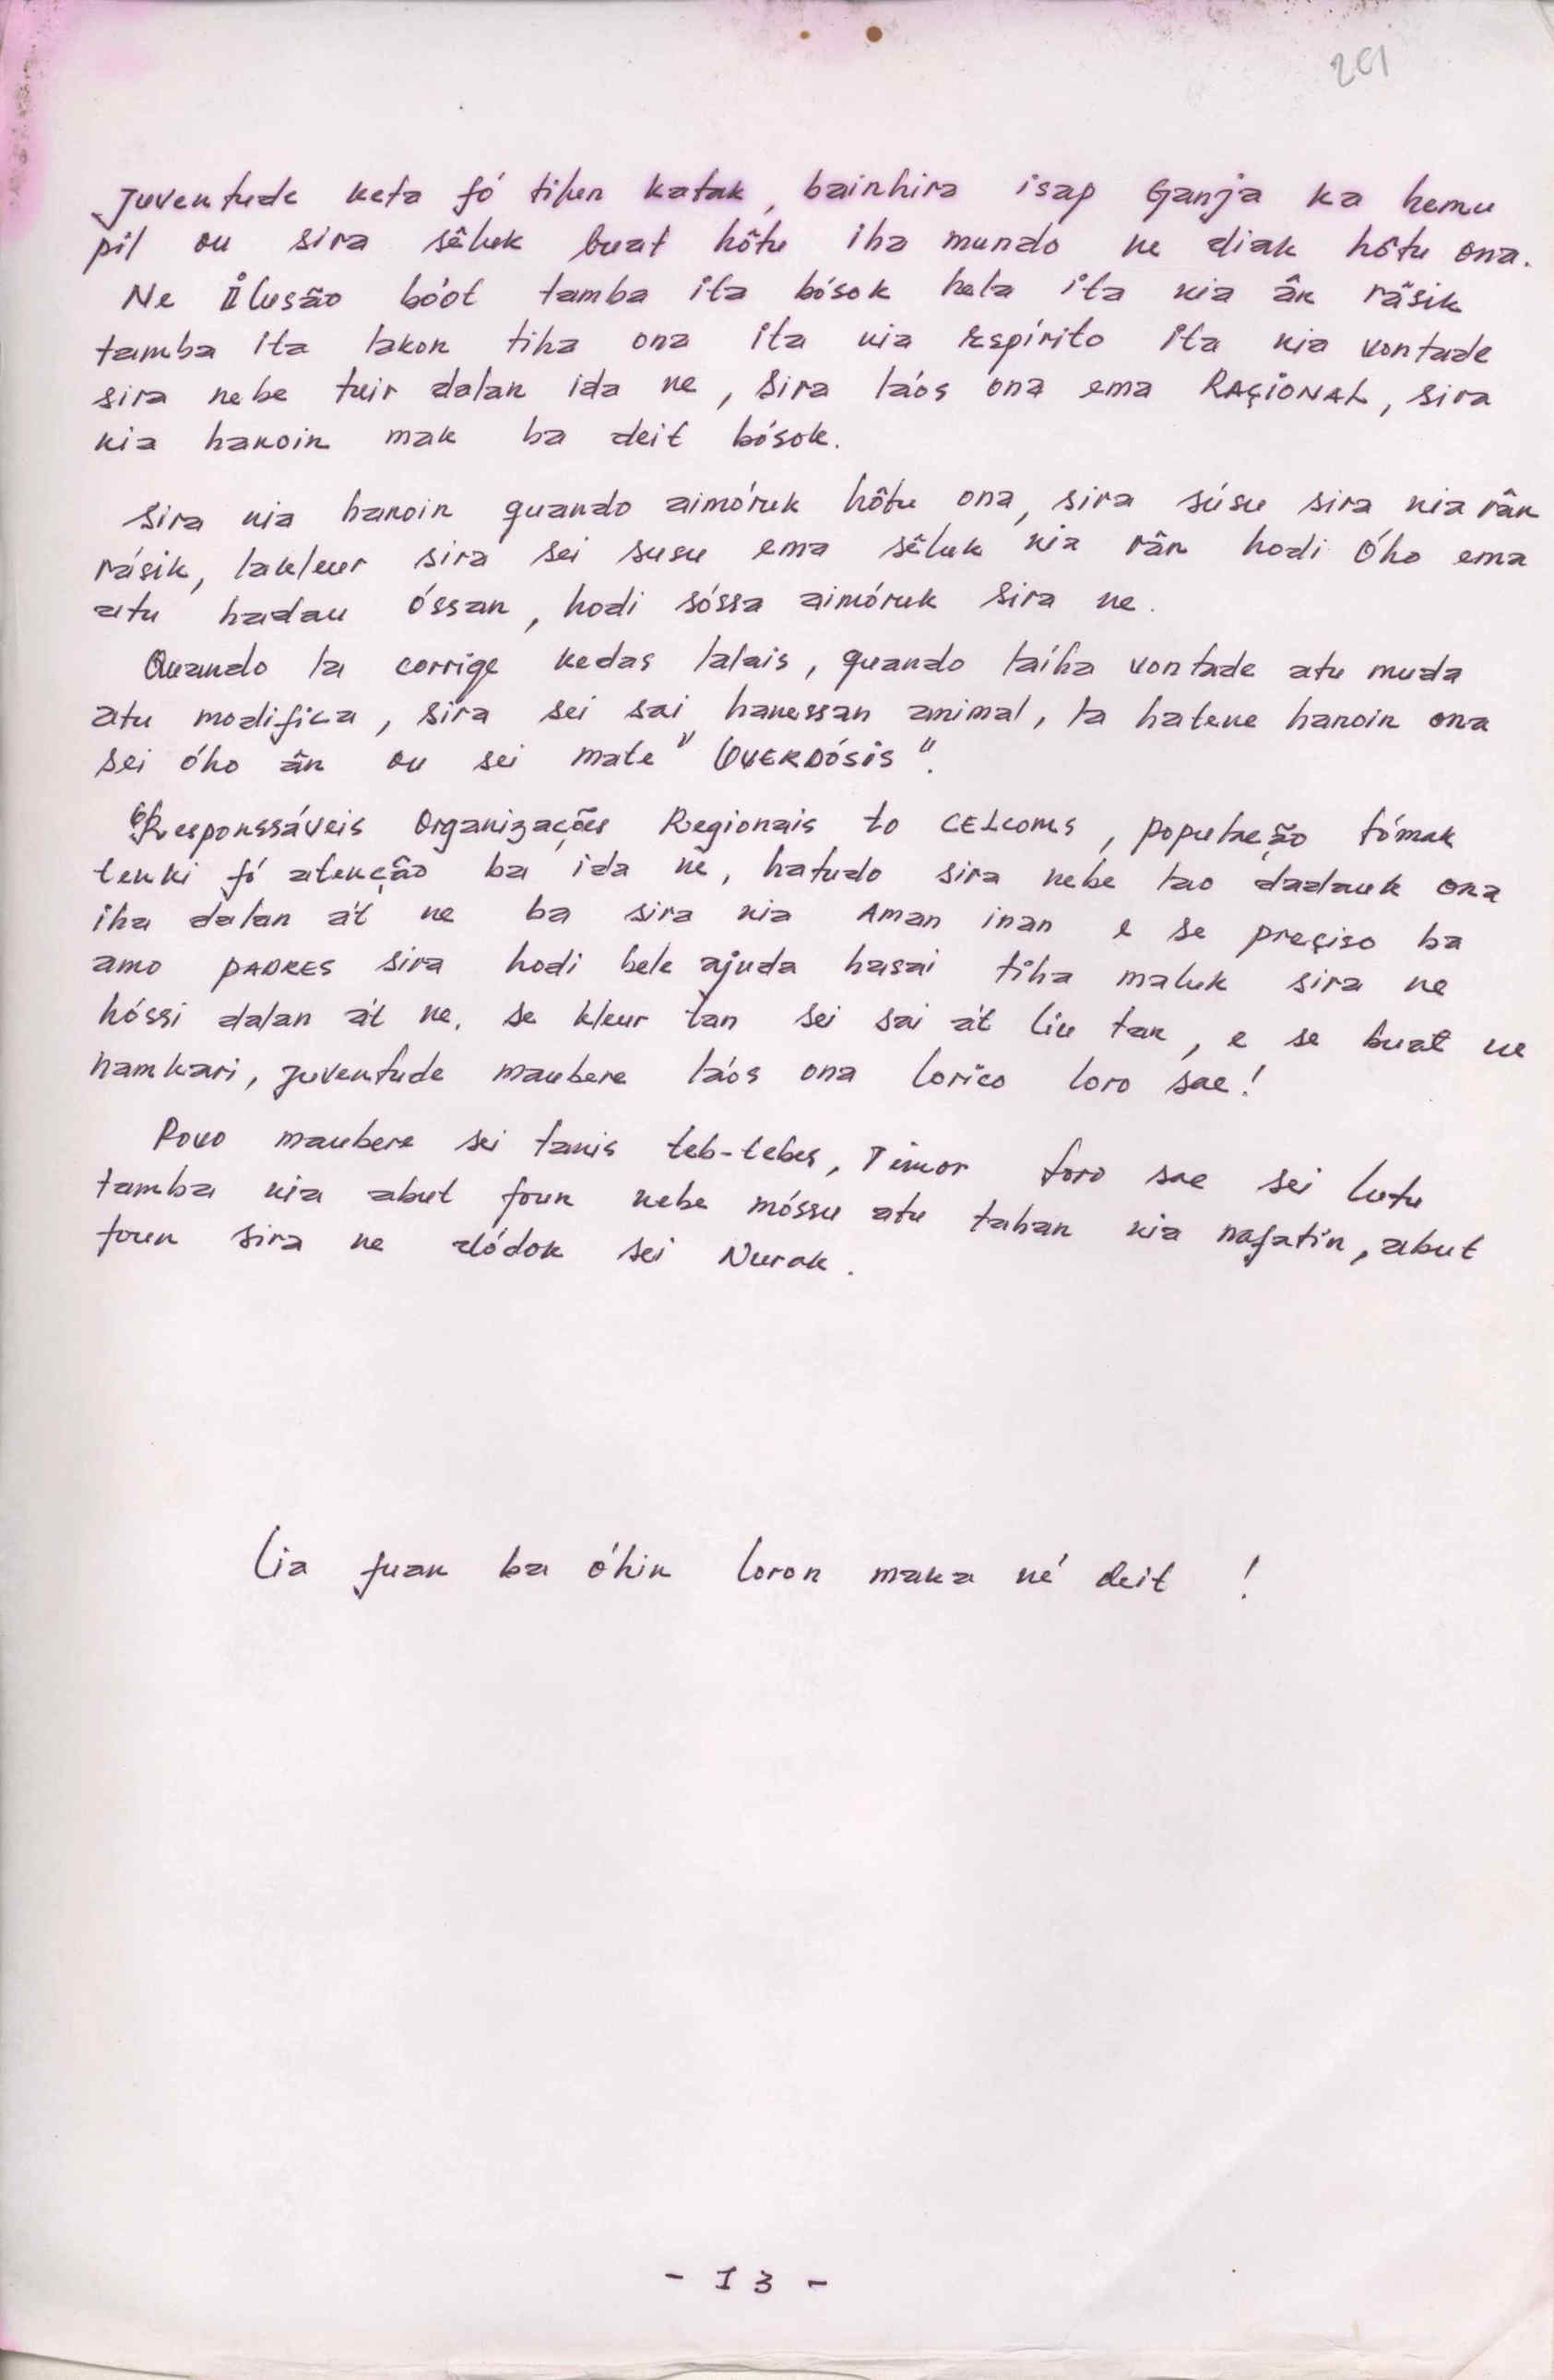 201
Juventude keta fó tilun katak, bainhira isap Ganja ka hemu
pil ou sira sêluk buat hôtu iha mundo ne diak hôtu ona.
Ne Ilusão bóot tamba ita bósok hela ita nia ân râsik
tamba ita lakon tiha ona ita nia Espírito ita nia vontade
sira nebe tuir dalan ida ne, sira láos ona ema RAÇIONAL, sira
nia hanoin mak ba deit bósok.
Sira nia hanoin quando aimóruk hôtu ona, sira súsu sira nia rân
rásik, lakleur sira sei susu ema sêluk nia rân hodi óho ema
atu hadau óssan, hodi sóssa aimóruk sira ne.
Quando la corrige kedas lalais, quando laíha vontade atu muda
atu modifica, sira sei sai hanessan animal, la hatene hanoin ona
sei óho ân ou sei mate "OVERDÓSIS".
Responssáveis Organizações Regionais to CELCOMS, população tómak
tenki fó atenção ba ida ne, hatudo sira nebe lao dadauk ona
iha dalan a't ne ba sira nia Aman inan e se preçiso ba
amo PADRES sira hodi bele ajuda hasai tiha maluk sira ne
hóssi dalan a't ne. se kleur tan sei sai a't liu tan, e se buat ne
namkari, juventude maubere láos ona lorico loro sae!
Povo maubere sei tanis teb-tebes, Timor loro sae sei lutu
tamba nia abut foun nebe móssu atu tahan nia nafatin, abut
foun sira ne dódok sei Nurak.
Lia fuan ba óhin loron maka né deit !
- 13 -